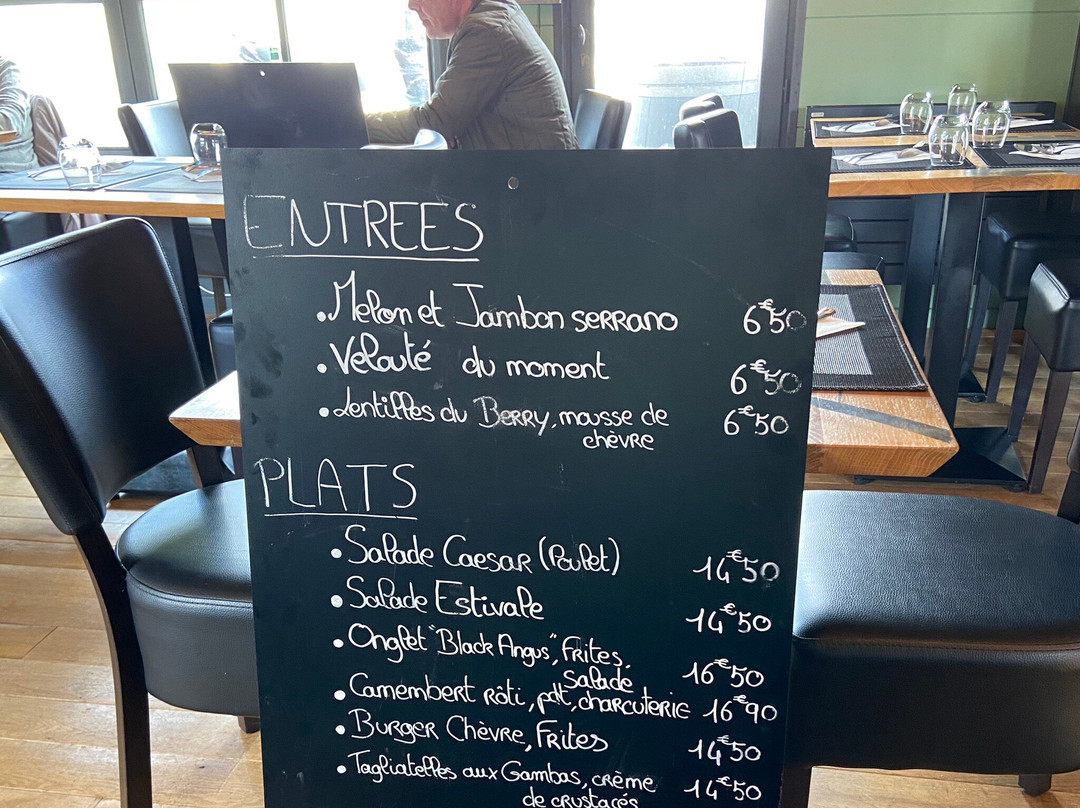 ENTREES
• Melon et Jambon SERRANO 6€50
• Velouté du moment 6€50
• Lentilles du BERRY, mousse de 6€50
chèvre
PLATS
• Salade CAESAR (Poulet) 14€50
• Salade Estivale 14€50
• Onglet "Black Angus", FRites, 16€50
Salade
• Camembert Rôti, pdt, charcuterie 16€90
• Burger Chèvre, Frites 14€50
• Tagliatelles aux Gambas, crème 14€50
de crustacés